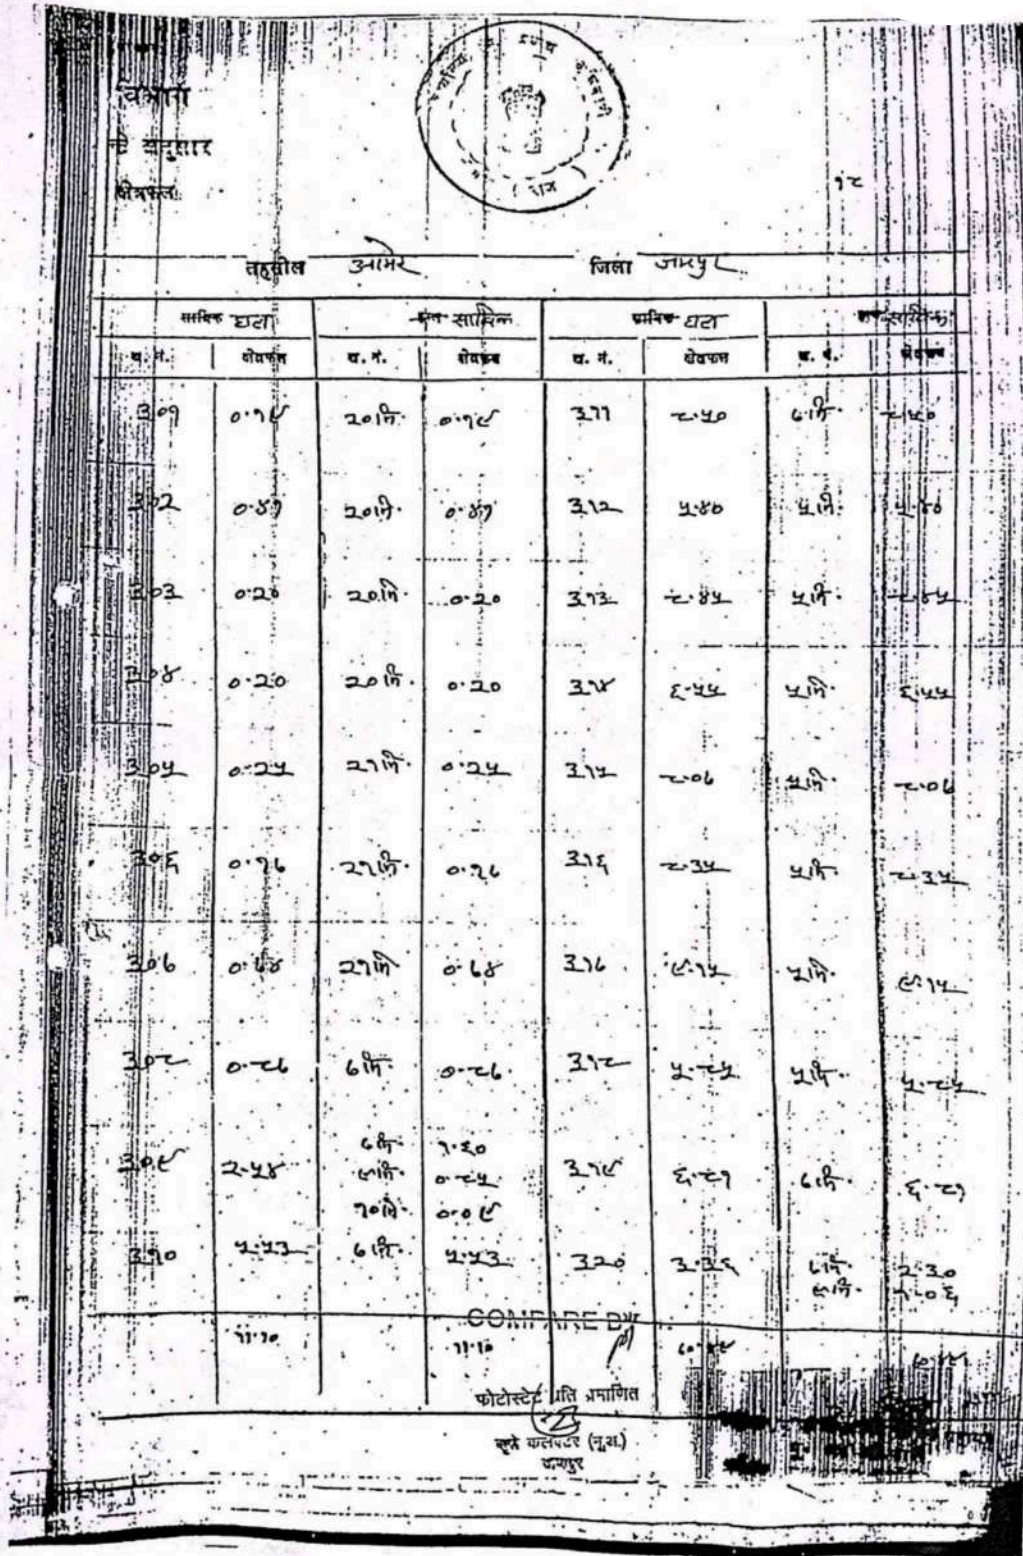 विभाग
के अनुसार
क्षेत्रफल
१८
तहसील आमेर जिला जयपुर
साबिक घटा साबिक साबिक घटा
ख. नं. क्षेत्रफल ख. नं. क्षेत्रफल ख. नं. क्षेत्रफल ख. नं. क्षेत्रफल
३०१ ०.१९ २०मि. ०.१९ ३११ ८.५० ७मि. ८.५०
३०२ ०.४१ २०मि. ०.४१ ३१२ ५.४० ५मि. ५.४०
३०३ ०.२० २०मि. ०.२० ३१३ ८.४५ ५मि. ८.४५
३०४ ०.२० २०मि. ०.२० ३१४ ६.५५ ५मि. ६.५५
३०५ ०.२५ २१मि. ०.२५ ३१५ ८.०७ ५मि. ८.०७
३०६ ०.१७ २१मि. ०.१७ ३१६ ८.३५ ५मि. ८.३५
३०७ ०.७४ २१मि ०.७४ ३१७ ९.१५ ५मि. ९.१५
३०८ ०.८७ ७मि. ०.८७ ३१८ ५.८५ ५मि. ५.८५
७मि. १.६०
३०९ २.५४ ९मि. ०.८५ ३१९ ६.८१ ७मि. ६.८१
१०मि. ०.०९
३१० ५.५३ ७मि. ५.५३ ३२० ३.३६ ७मि. २.३०
९मि. १.०६
COMPARE BY
११.१० ११.१०
फोटोस्टेट प्रति प्रमाणित
कलेक्टर (मु.)
जयपुर